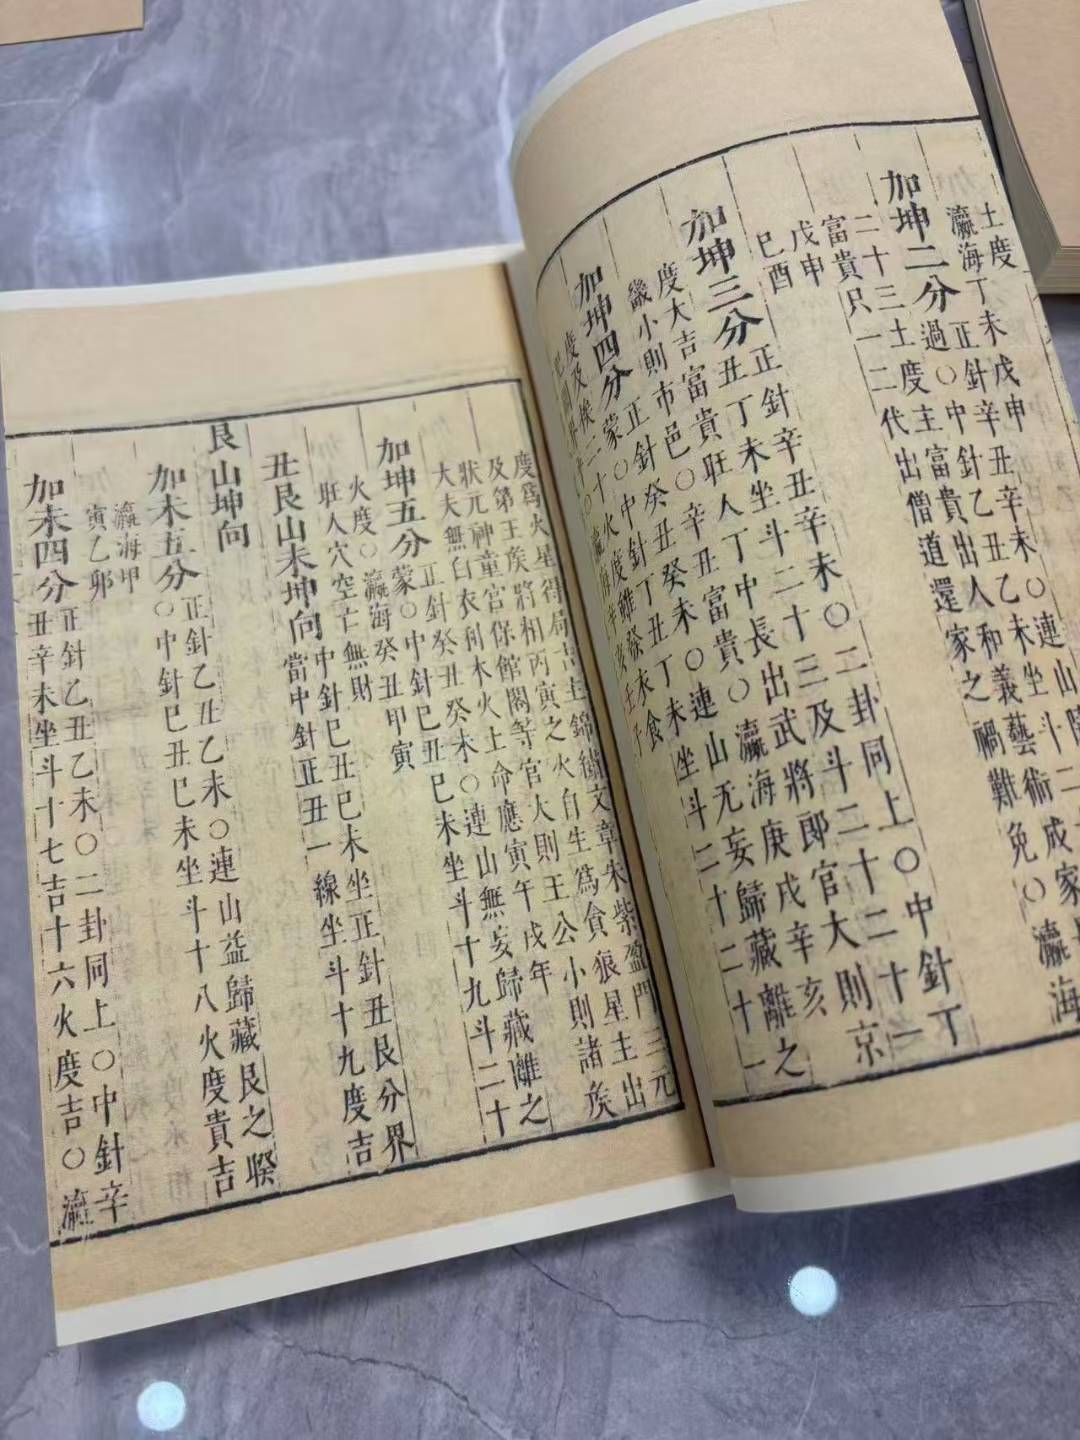 土度
瀛海丁未戊申
加坤二分
正針辛丑辛未○連山
過○中針乙丑乙未坐斗二
二十三土度主富貴出人和義藝術成家
富貴只一二代出僧道還家之禍難免○瀛海
戊申
己酉
加坤三分
正針辛丑辛未○二卦同上○中針丁
丑丁未坐斗二十三及斗二十二十一
度大吉富貴旺人丁中長出武將郎官大則京
畿小則市邑○辛丑富貴○瀛海庚戌辛亥
加坤四分
正針癸丑癸未○連山无妄歸藏離之
蒙○中針丁丑丁未坐斗二十二十一
度為火星得局吉主錦繡文章朱紫盈門三元
及第王侯將相丙寅之火自生為貪狼星主出
狀元神童官保館閣等官大則王公小則諸侯
大夫無白衣利木火土命應寅午戌年
加坤五分
正針癸丑癸未○連山無妄歸藏離之
蒙○中針己丑己未坐斗十九斗二十
火度○瀛海癸丑甲寅
旺人穴空亡無財
丑艮山未坤向
中針己丑己未坐正針丑艮分界
當中針正丑一線坐斗十九度吉
艮山坤向
加未五分
正針乙丑乙未○連山益歸藏艮之睽
○中針己丑己未坐斗十八火度貴吉
瀛海甲
寅乙卯
加未四分
正針乙丑乙未○二卦同上○中針辛
丑辛未坐斗十七吉十六火度吉○瀛